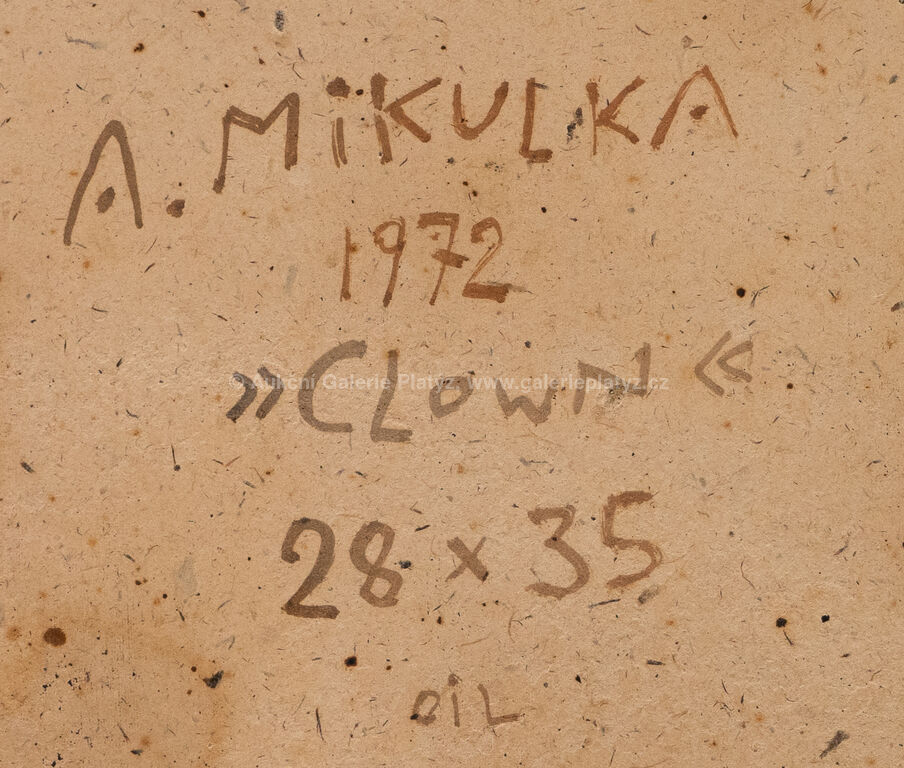 A. MiKULKA
1972
»CLOWN«
© Aukční Galerie Platýz, www.galerieplatyz.cz
28 x 35
oiL